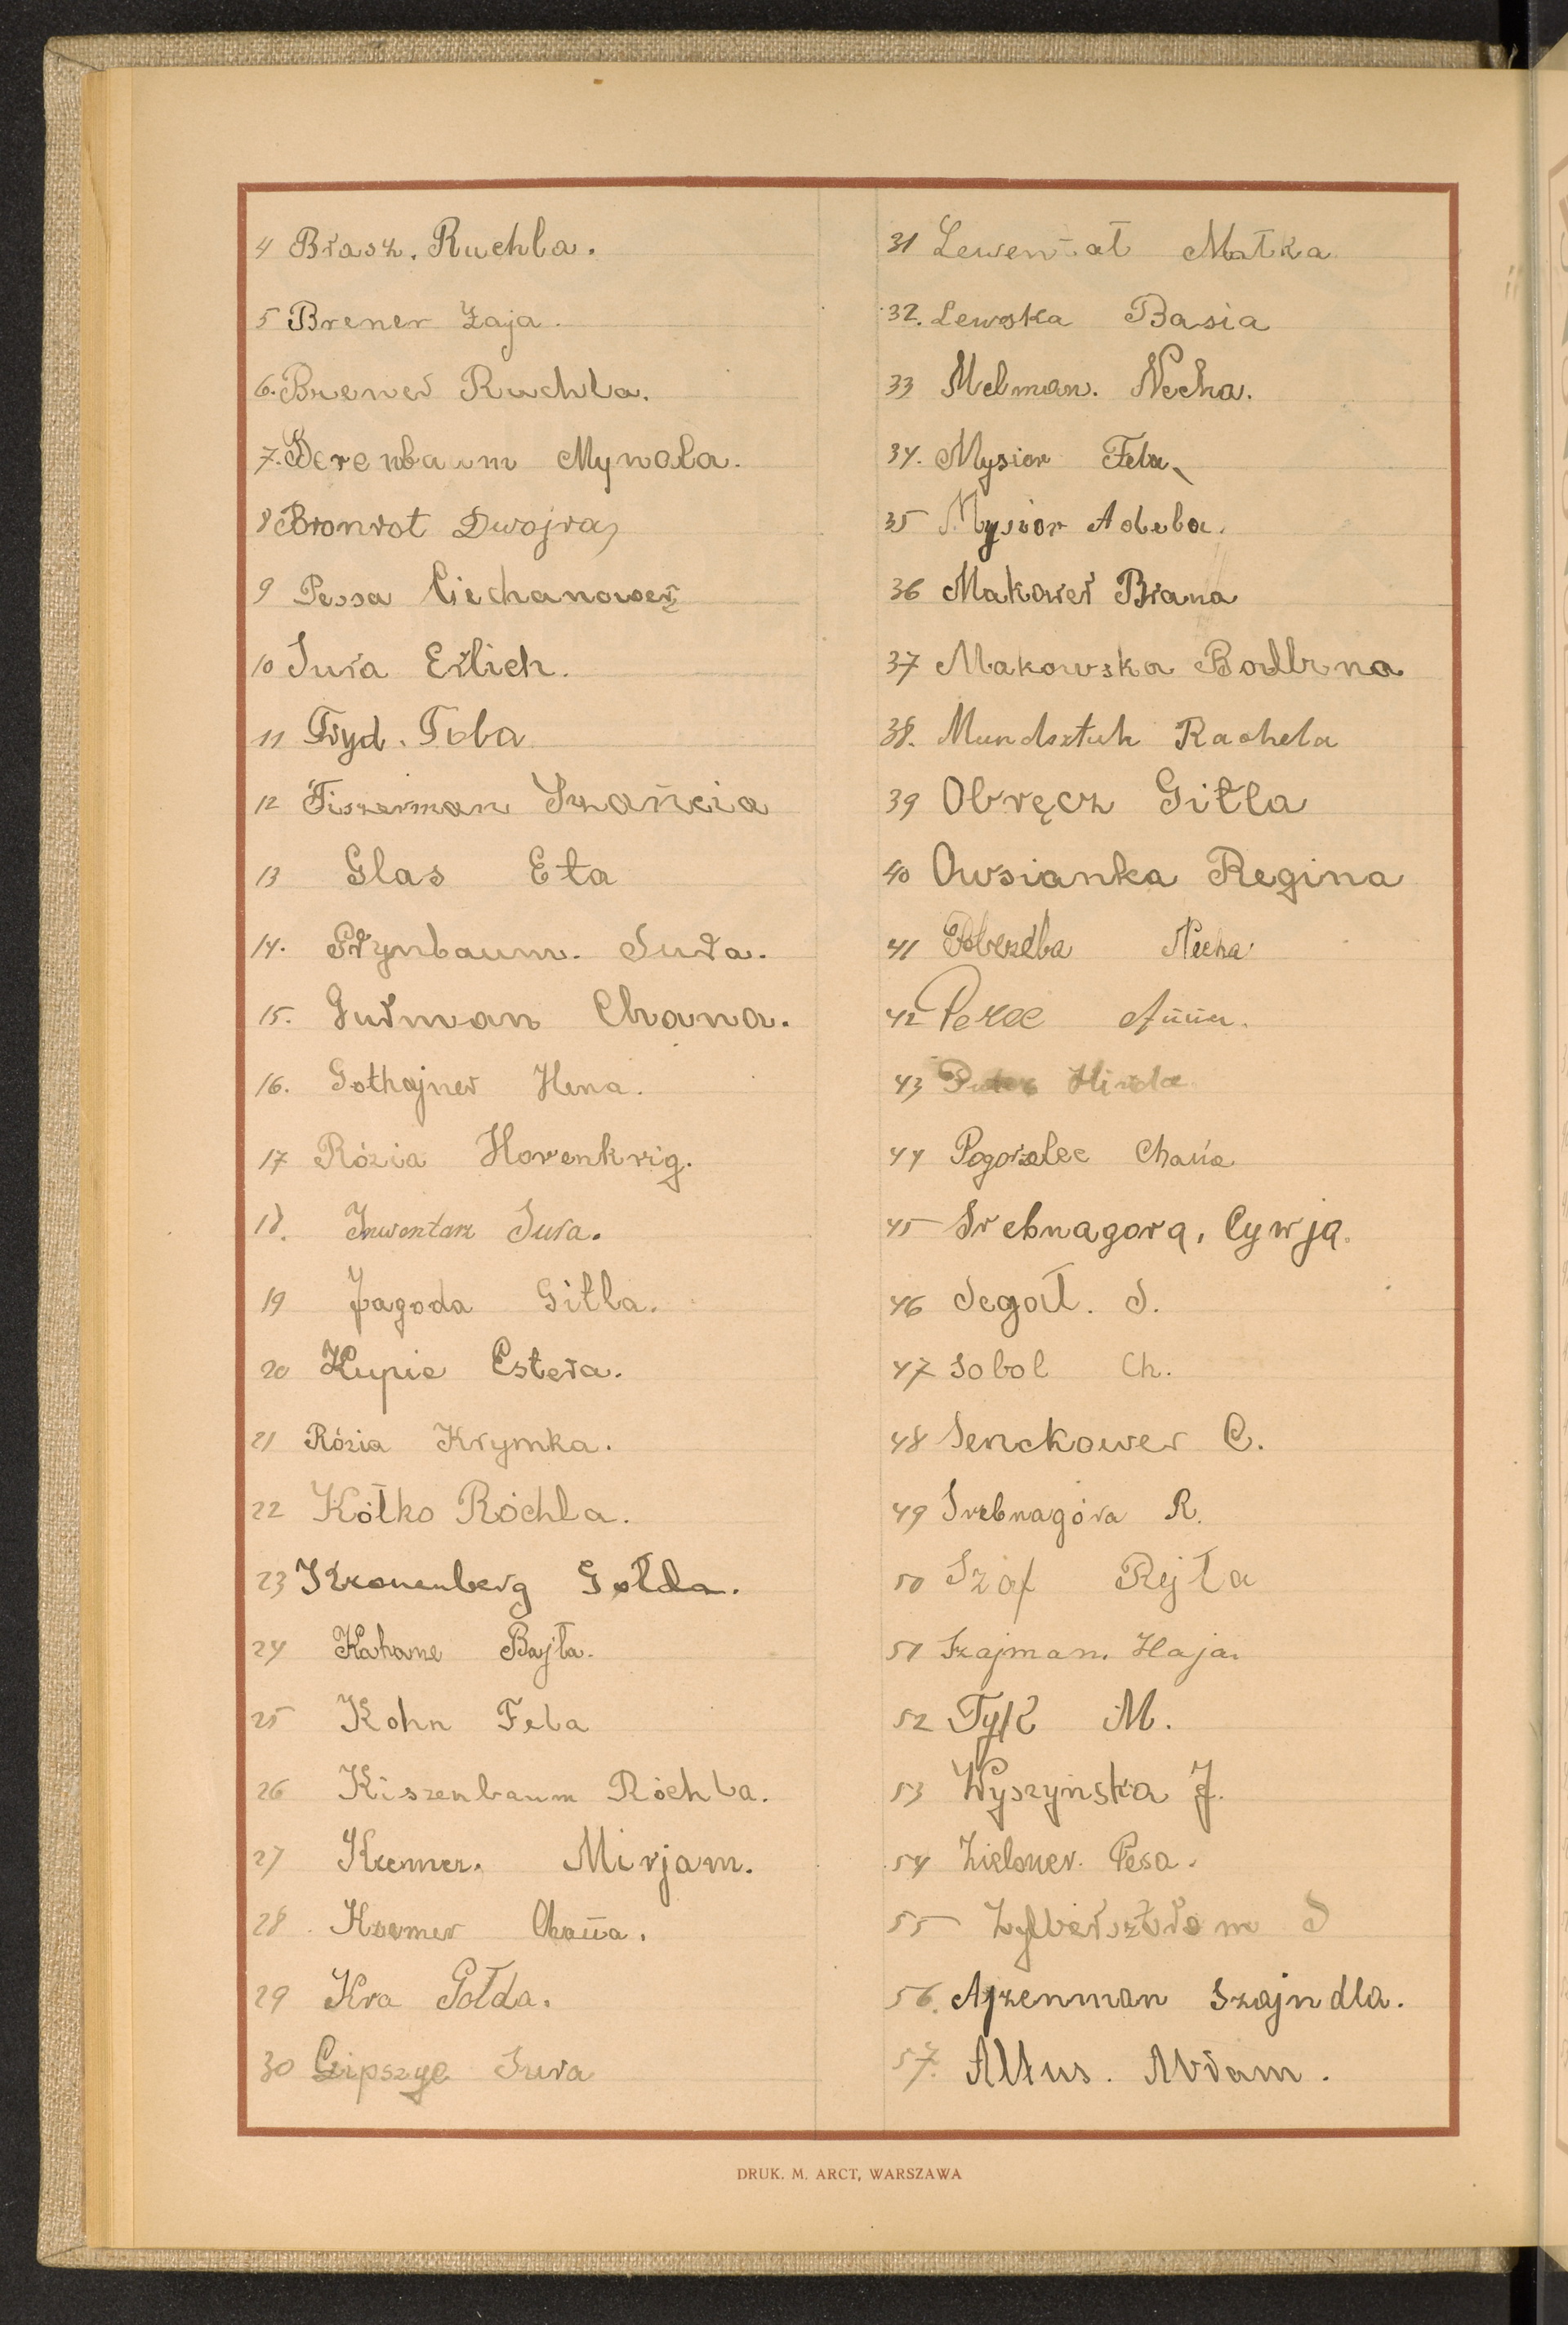 4 Brasz. Ruchla.
5 Brener Łaja.
6. Brener Ruchla.
7. Berenbaum Mynola.
8 Bronrot Dwojra
9 Pessa Ciechanower
10 Sura Erlich.
11 Fryd. Toba
12 Fiszerman Szańcia
13 Glas Eta
14. Grynbaum. Sura.
15. Gurman Chana.
16. Gothajner Hena.
17 Rózia Horenkrig.
18. Inwentarz Sura.
19 Jagoda Gitla.
20 Kupie Estera.
21 Rózia Krymka.
22 Kółko Róchla.
23 Kronenberg Gołda.
24 Kahane Bajła.
25 Kohn Fela
26 Kiszenbaum Róchla.
27 Kremer. Mirjam.
28. Kremer Chana.
29 Kra Gołda.
30 Lipszyc Sura
31 Lewental Małka
32. Lewska Basia
33 Melman. Necha.
34. Mysior Fela
35 Mysior Adela.
36 Makower Brana
37 Makowska
38. Mundsztuk Rachela
39 Obręcz Gitla
40 Owsianka Regina
41 Necha
42 Perec Anna.
43 Hinda
44 Pogorzelec Chana
45 Srebnagora, Cywja.
46 Segał. S.
47 Sobol Ch.
48 Senckower C.
49 Srebnagóra R.
50 Szaf Rejla
51 Szajman. Haja.
52 Tyk M.
53 Wyszyńska J.
54 Zielouer. Pesa.
55 Zylbersztrom S
56. Ajzenman Szajndla.
57. Altus. Abram.
DRUK. M. ARCT, WARSZAWA